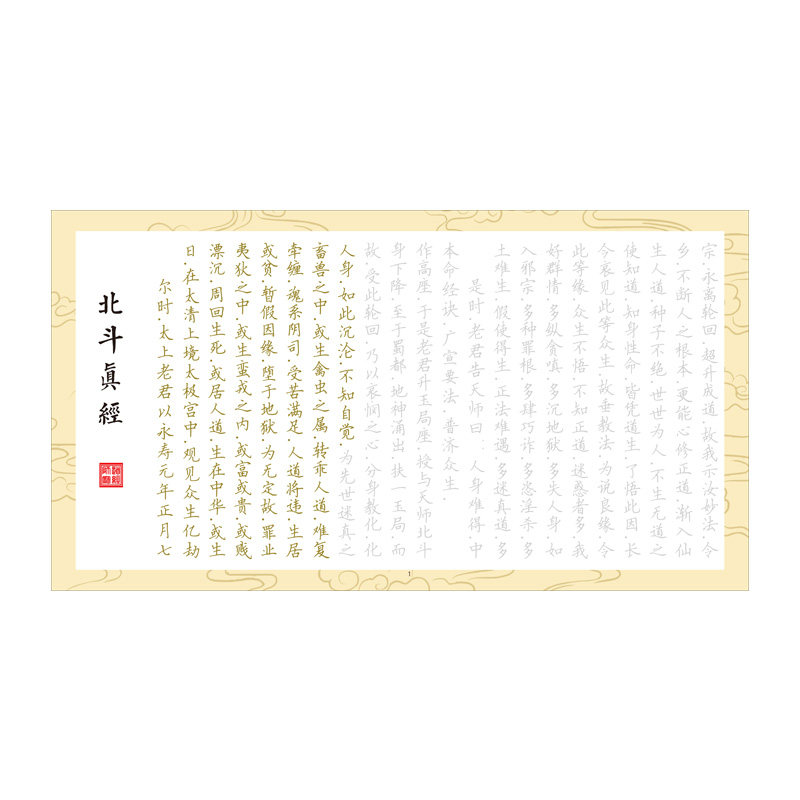 北斗眞經
尔时.太上老君以永寿元年正月七
日.在太清上境太极宫中.观见众生亿劫
漂沉.周回生死.或居人道.生在中华.或生
夷狄之中.或生蛮戎之内.或富或贵.或贱
或贫.暂假因缘.堕于地狱.为无定故.罪业
牵缠.魂系阴司.受苦满足.人道将违.生居
畜兽之中.或生禽虫之属.转乖人道.难复
人身.如此沉沦.不知自觉.为先世迷真之
故.受此轮回.乃以哀悯之心.分身教化.化
身下降.至于蜀都.地神涌出.扶一玉局.而
作高座.于是老君升玉局座.授与天师北斗
本命经诀.广宣要法.普济众生.
是时.老君告天师曰:人身难得.中
土难生.假使得生.正法难遇.多迷真道.多
入邪宗.多种罪根.多肆巧诈.多恣淫杀.多
好群情.多纵贪嗔.多沉地狱.多失人身.如
此等缘.众生不悟.不知正道.迷惑者多.我
今哀见此等众生.故垂教法.为说良缘.令
使知道.知身性命.皆凭道生.了悟此因.长
生人道.种子不绝.世世为人.不生无道之
乡.不断人之根本.更能心修正道.渐入仙
宗.永离轮回.超升成道.故我示汝妙法.令
1